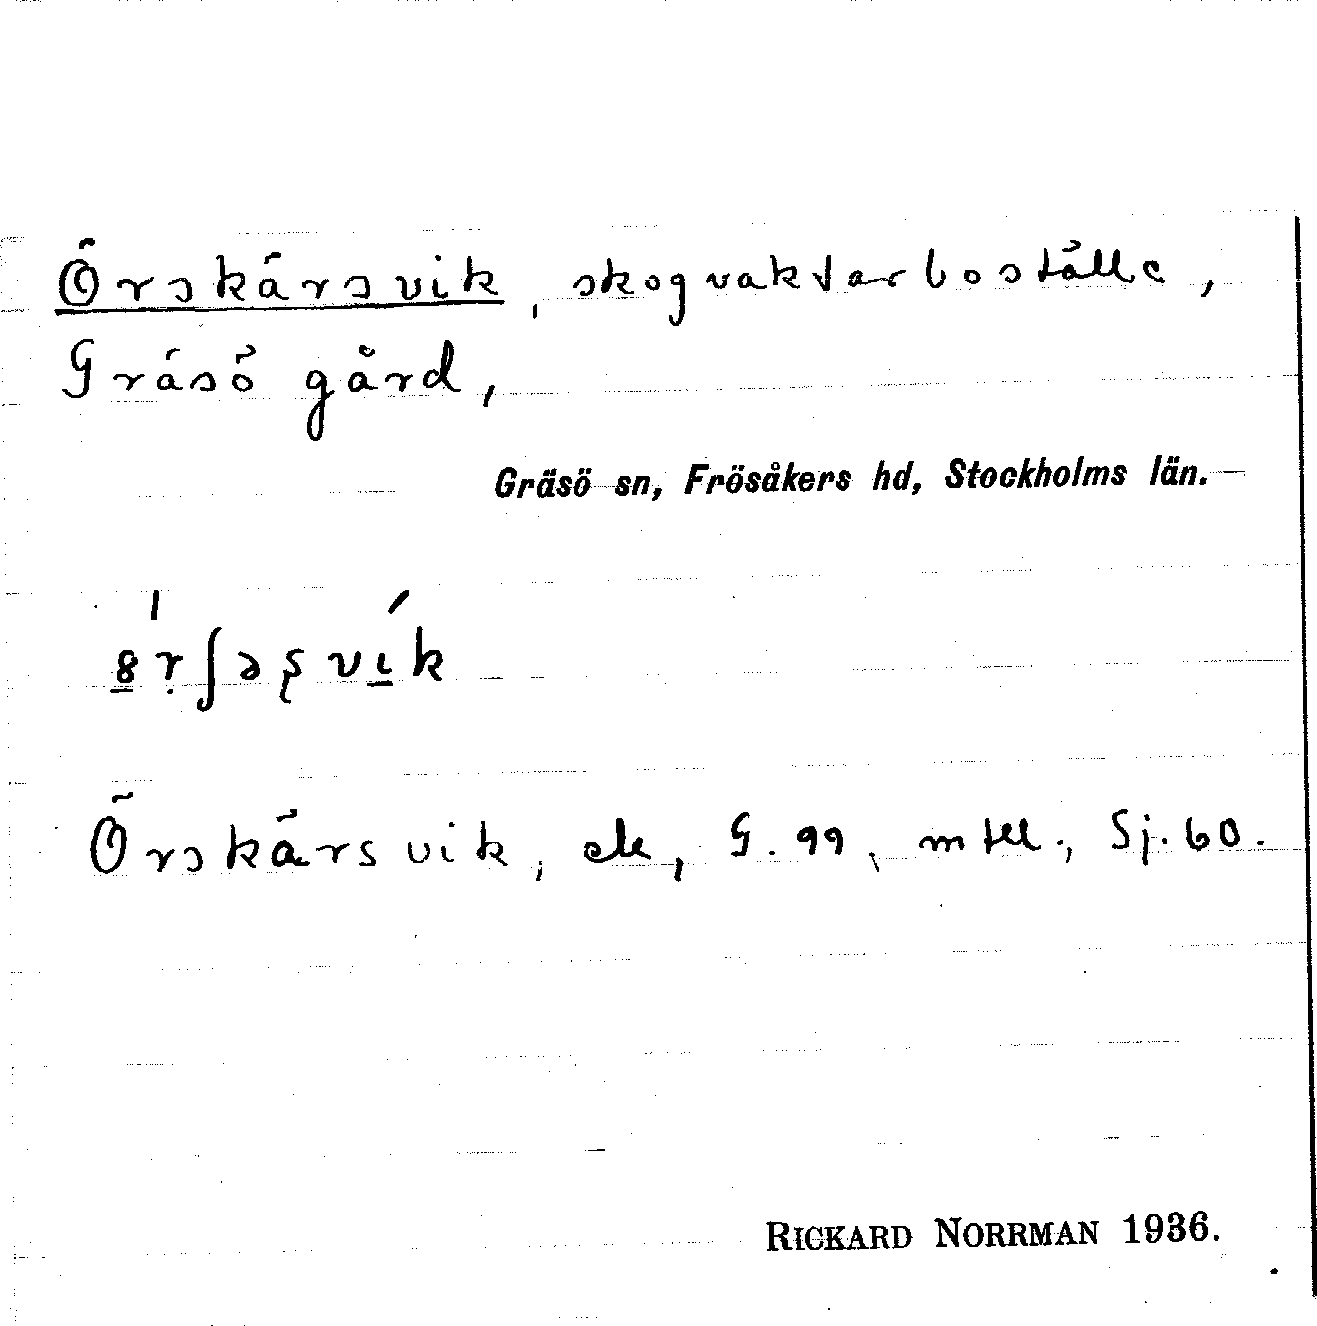 Örskärsvik, skogvaktarboställe,
Gräsö gård,
Gräsö sn, Frösåkers hd, Stockholms län.
Örskärsvik, ek, G. 99, mtll., Sj. 60.
RICKARD NORRMAN 1936.